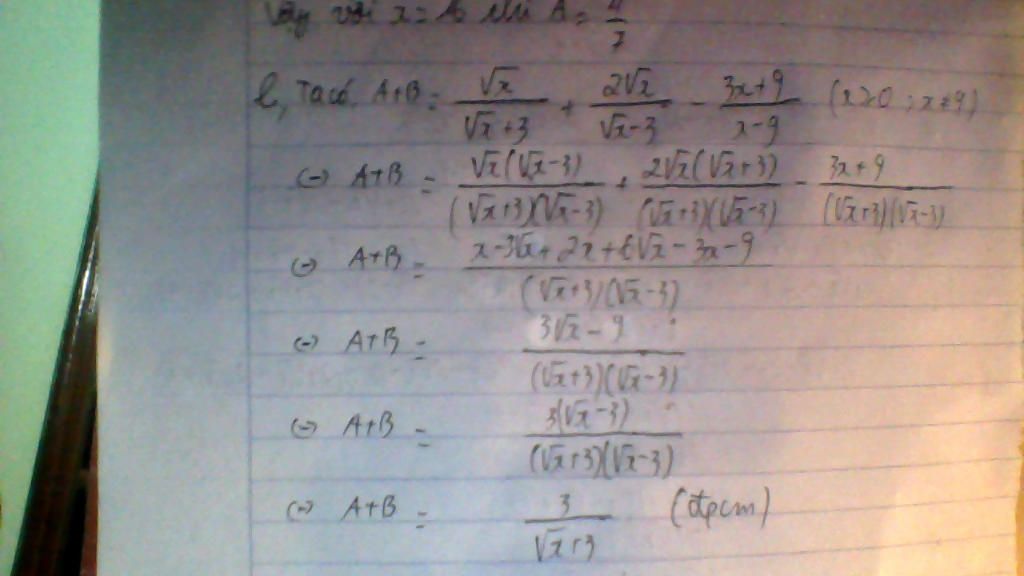 Vậy với x = 16 thì A = 4/7
b, Ta có: A+B = √x/(√x+3) + 2√x/(√x-3) - (3x+9)/(x-9) (x≥0; x≠9)
(=) A+B = √x(√x-3)/((√x+3)(√x-3)) + 2√x(√x+3)/((√x+3)(√x-3)) - (3x+9)/((√x+3)(√x-3))
(=) A+B = (x-3√x+2x+6√x-3x-9)/((√x+3)(√x-3))
(=) A+B = (3√x-9)/((√x+3)(√x-3))
(=) A+B = 3(√x-3)/((√x+3)(√x-3))
(=) A+B = 3/(√x+3) (đpcm)